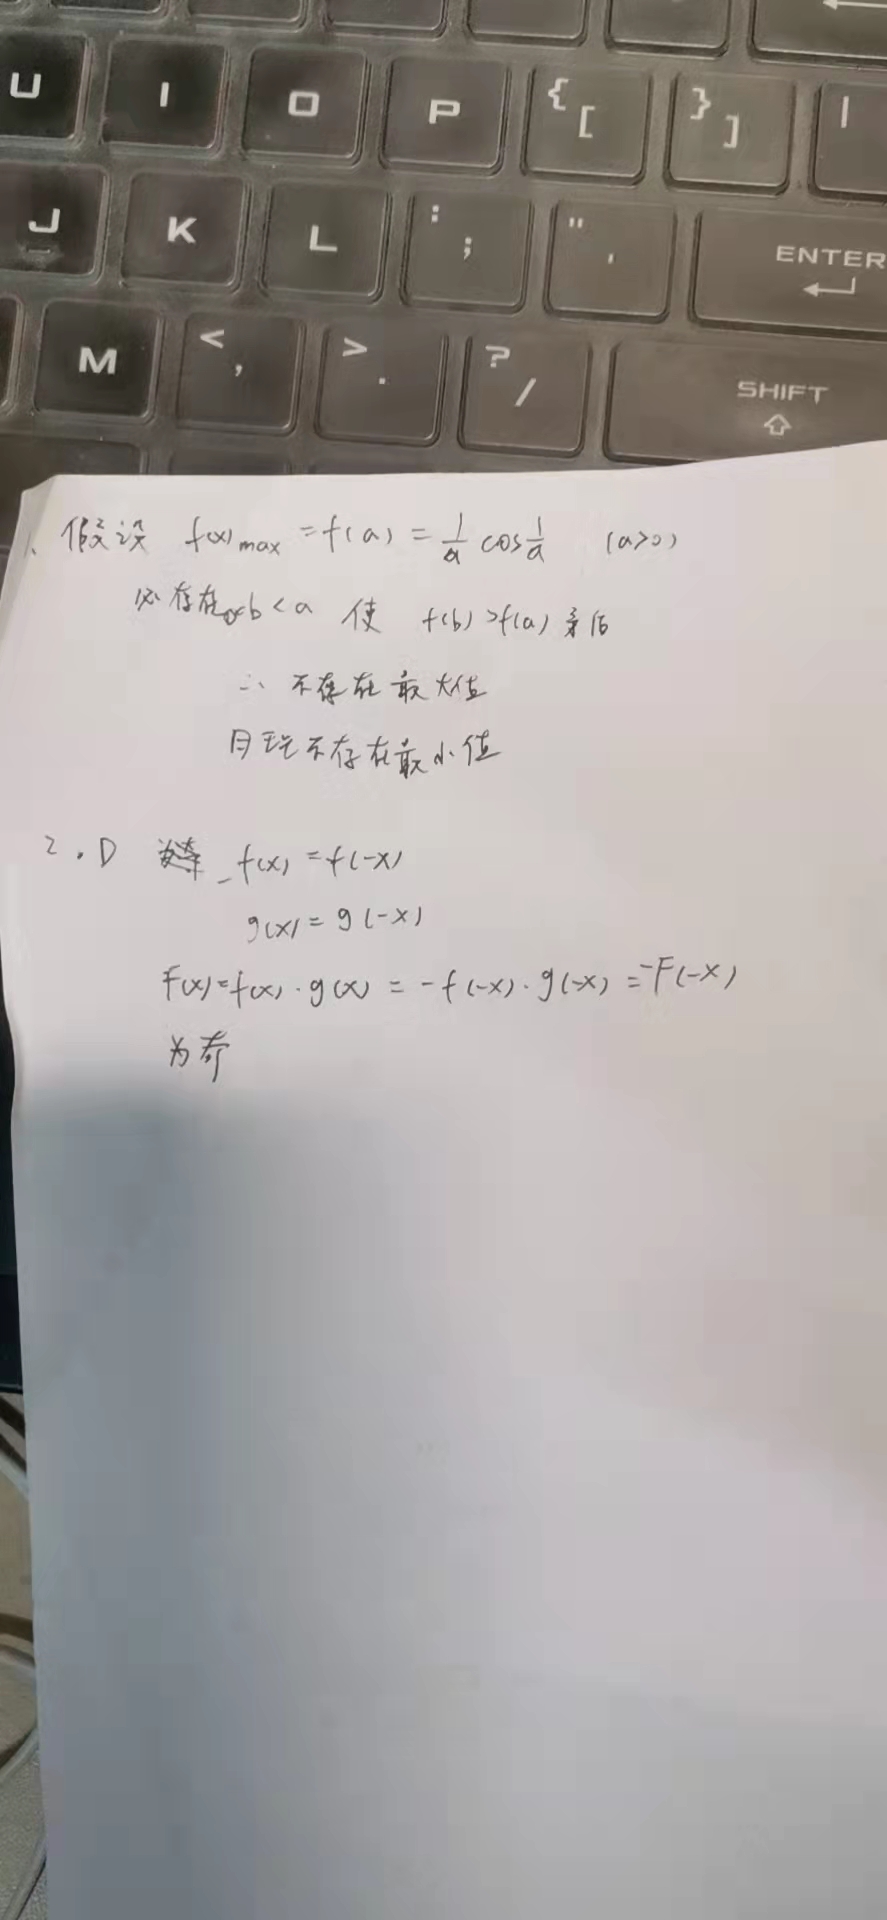 U I O P { [ } ] |
J K L : ; " ' ENTER
M < , > . ? / SHIFT
1、假设 f(x)max = f(a) = 1/a cos 1/a (a>0)
必存在0<b<a 使 f(b)>f(a) 矛盾
∴ 不存在最大值
同理不存在最小值
2. D -f(x) = f(-x)
g(x) = g(-x)
F(x)=f(x)·g(x) = -f(-x)·g(-x) = -F(-x)
为奇